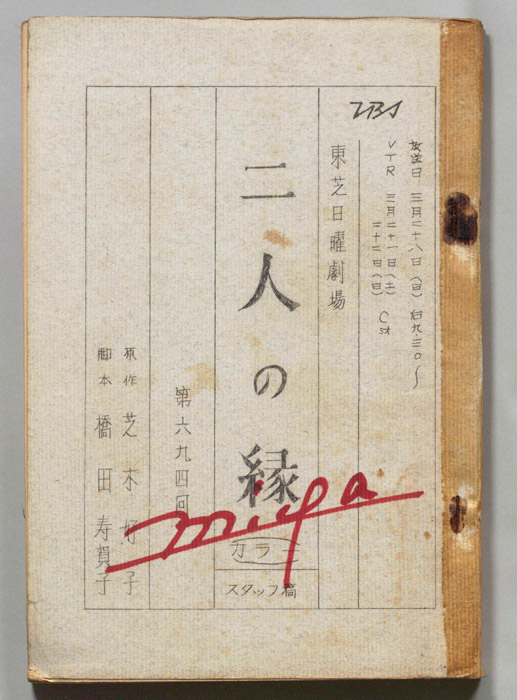 TBS
放送日 三月二十八日(日) 后九・三〇〜
VTR 三月二十一日(土)
二十二日(日) Cst
東芝日曜劇場
二人の縁
カラー
スタッフ稿
第六九四回
原作 芝木好子
脚本 橋田寿賀子
miya